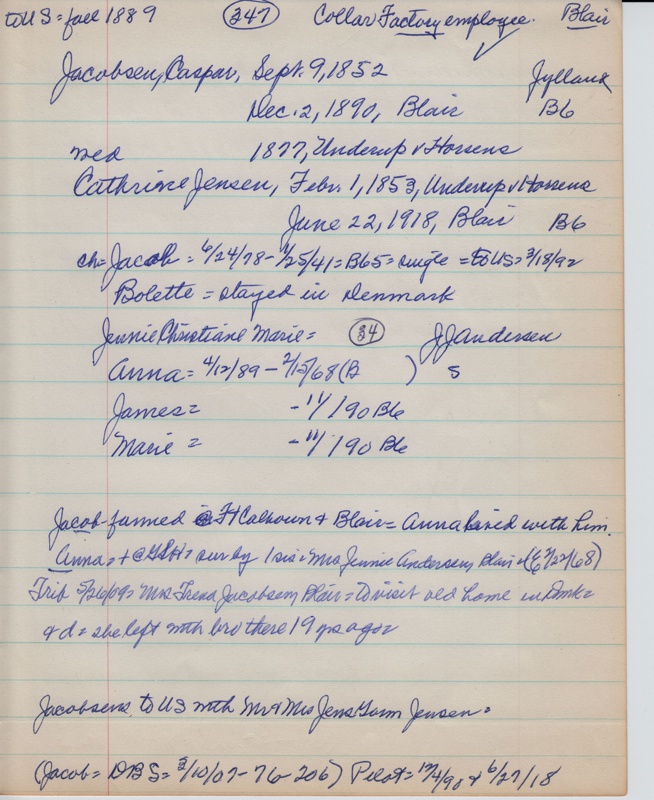 to US = fall 1889 (247) Collar Factory employee. Blair
Jacobsen, Caspar, Sept. 9, 1852 Jylland
Dec. 2, 1890, Blair B6
med 1877, Underup v Horsens
Cathrine Jensen, Febr. 1, 1853, Underup v Horsens
June 22, 1918, Blair B6
ch = Jacob = 6/24/78 - /25/41 = B65 = single = to US = 3/18/92
Bolette = stayed in Denmark
Jennie Christiane Marie = (34) JJ Andersen
Anna = 4/12/89 - 2/15/68 (B ) S
James = - 11/190 B6
Marie = - 11/190 B6
Jacob farmed @ Ft Calhoun + Blair = Anna lived with him.
Anna = + @ = sur by 1 sis = Mrs Jennie Andersen, Blair (E 2/22/68)
Trib 5/26/09 = Mrs Trena Jacobsen, Blair = to visit old home in Dmk =
+ d = she left with bro there 19 yrs ago =
Jacobsens to US with Mr + Mrs Jens Gorm Jensen =
(Jacob = DBS = 3/10/07 - 76 - 206) Pilot = 12/4/90 + 6/27/18